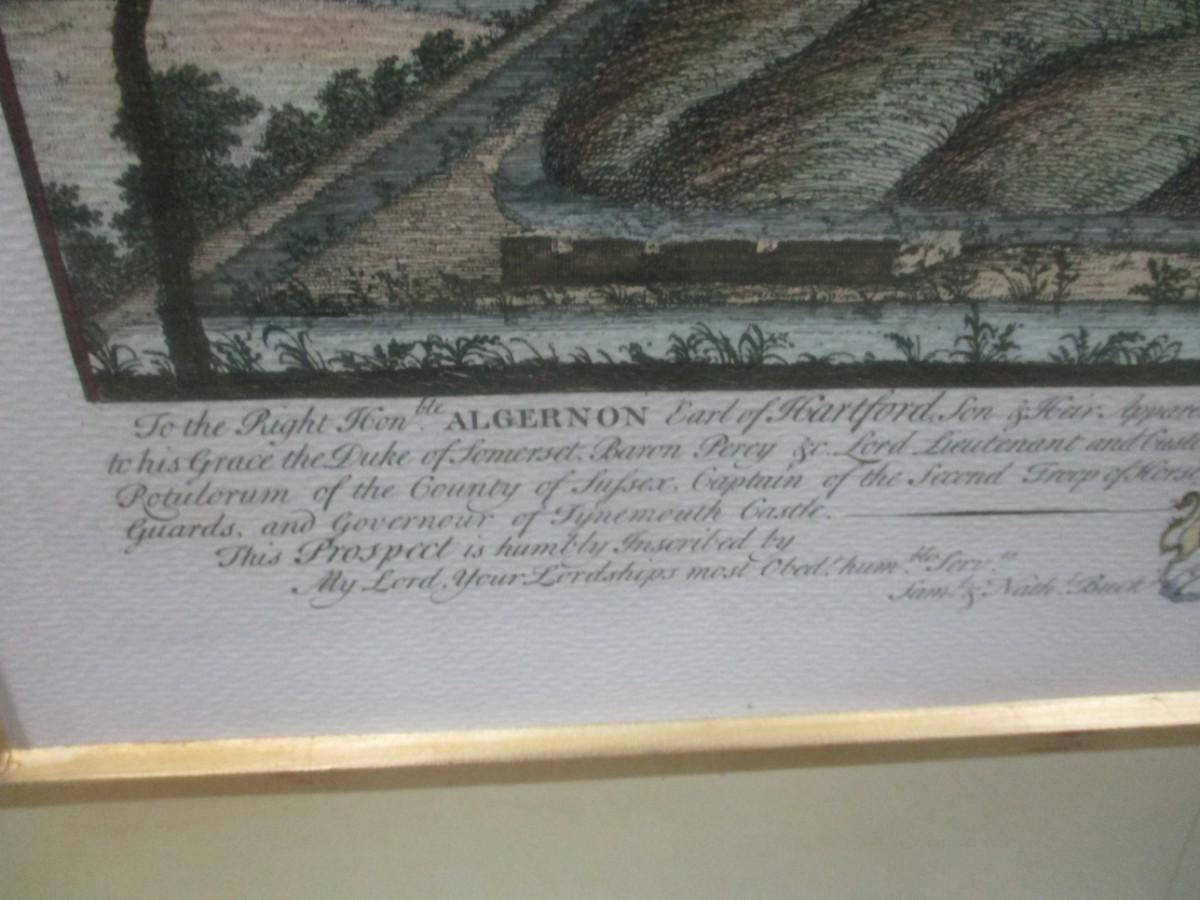 To the Right Honble. ALGERNON Earl of Hartford, Son & Heir Appare
to his Grace the Duke of Somerset, Baron Percy &c. Lord Lieutenant and
Rotulorum of the County of Sussex, Captain of the Second Troop of Horse
Guards, and Governour of Tynemouth Castle.
This Prospect is humbly Inscribed by
My Lord, Your Lordships most Obedt. humble Servts
Saml. & Nathl. Buck